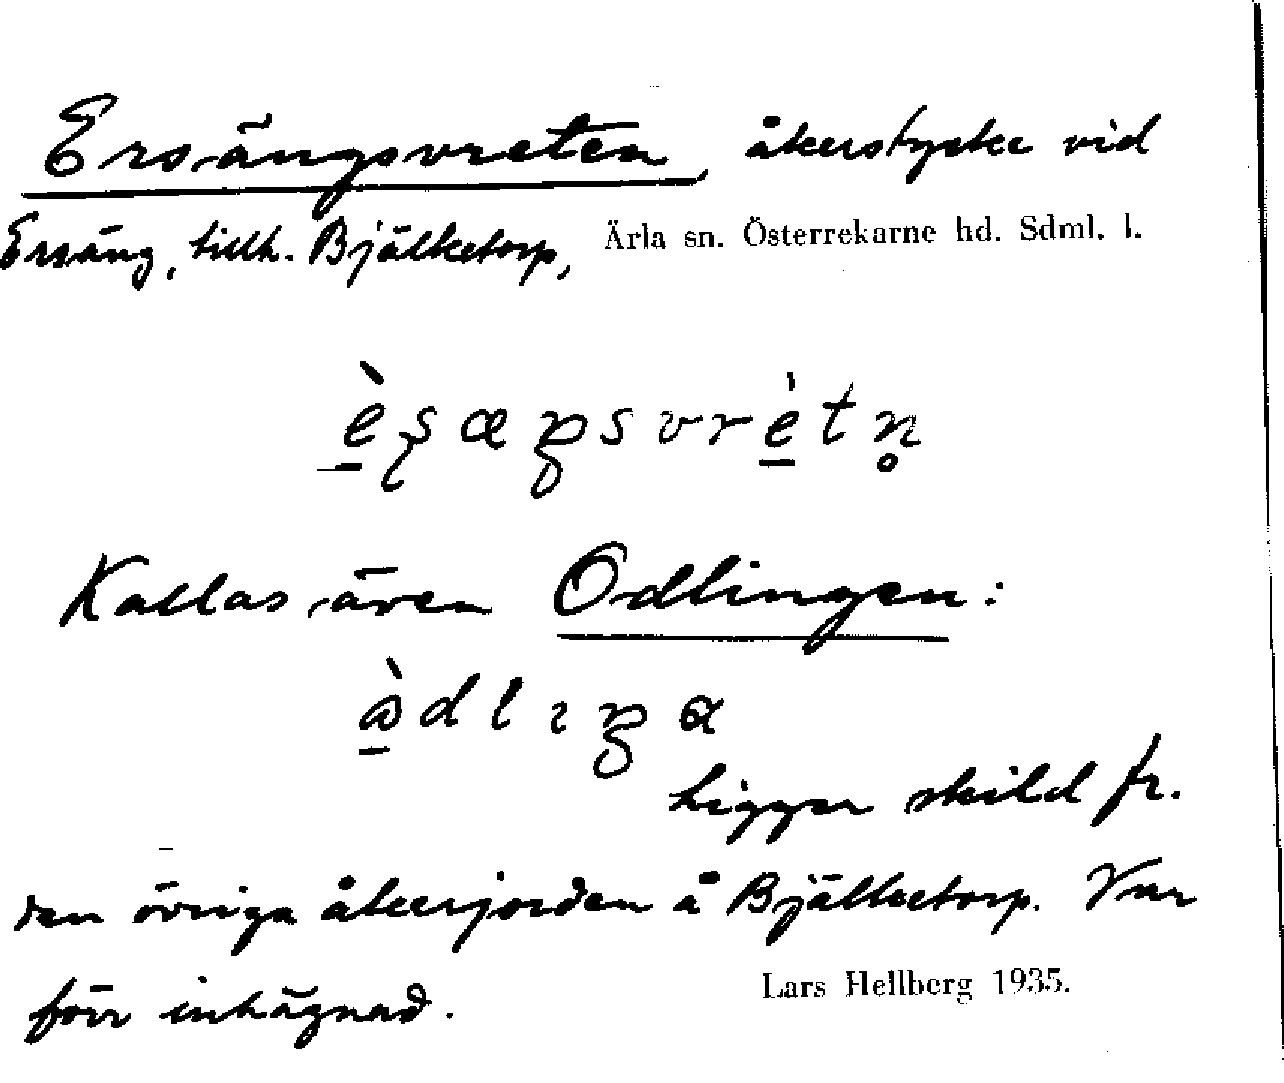 Ersängsvreten, åkerstycke vid
Ersäng, tillh. Bjälketorp, Ärla sn. Österrekarne hd. Sdml. l.
Kallas även Odlingen:
Ligger skild fr.
den övriga åkerjorden å Bjälketorp. Var
förr inhägnad.
Lars Hellberg 1935.